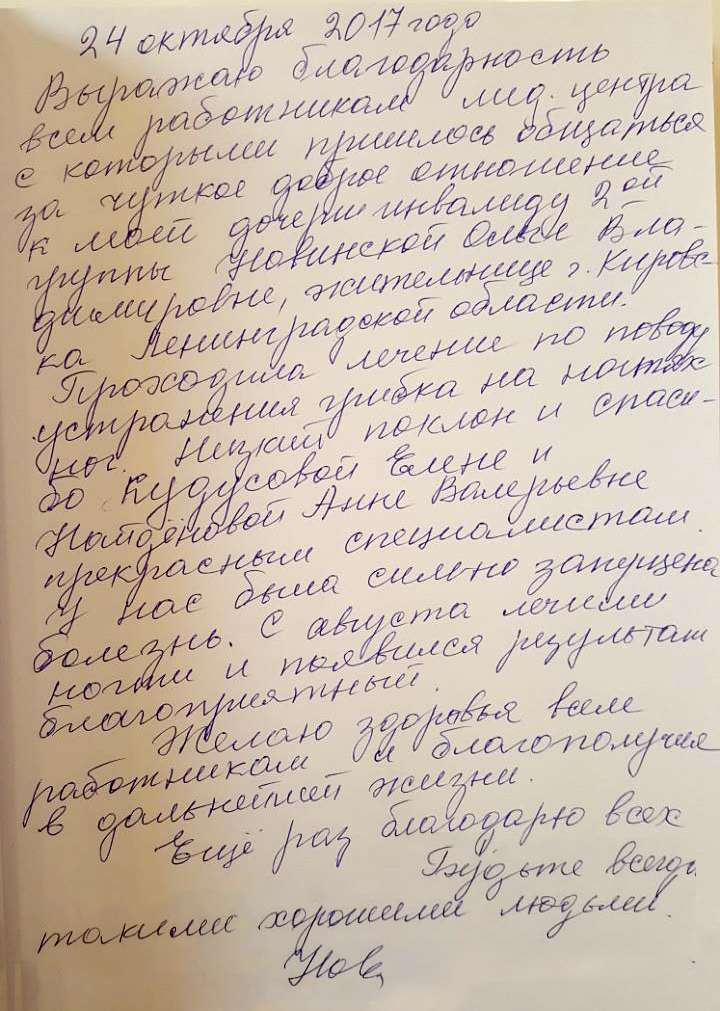 24 октября 2017 года
Выражаю благодарность
всем работникам мед. центра
с которыми пришлось общаться
за чуткое доброе отношение
к моей дочери инвалиду 2ой
группы Новинской Ольге Вла-
димировне, жительнице г. Кировс-
ка Ленинградской области.
Проходила лечение по поводу
устранения грибка на ногтях
ног. Низкий поклон и спаси-
бо Кудусовой Елене и
Найдёновой Анне Валерьевне
прекрасным специалистам.
У нас была сильно запущена
болезнь. С августа лечили
ногти и появился результат
благоприятный.
Желаю здоровья всем
работникам и благополучия
в дальнейшей жизни.
Ещё раз благодарю всех
Будьте всегда
такими хорошими людьми.
Нов